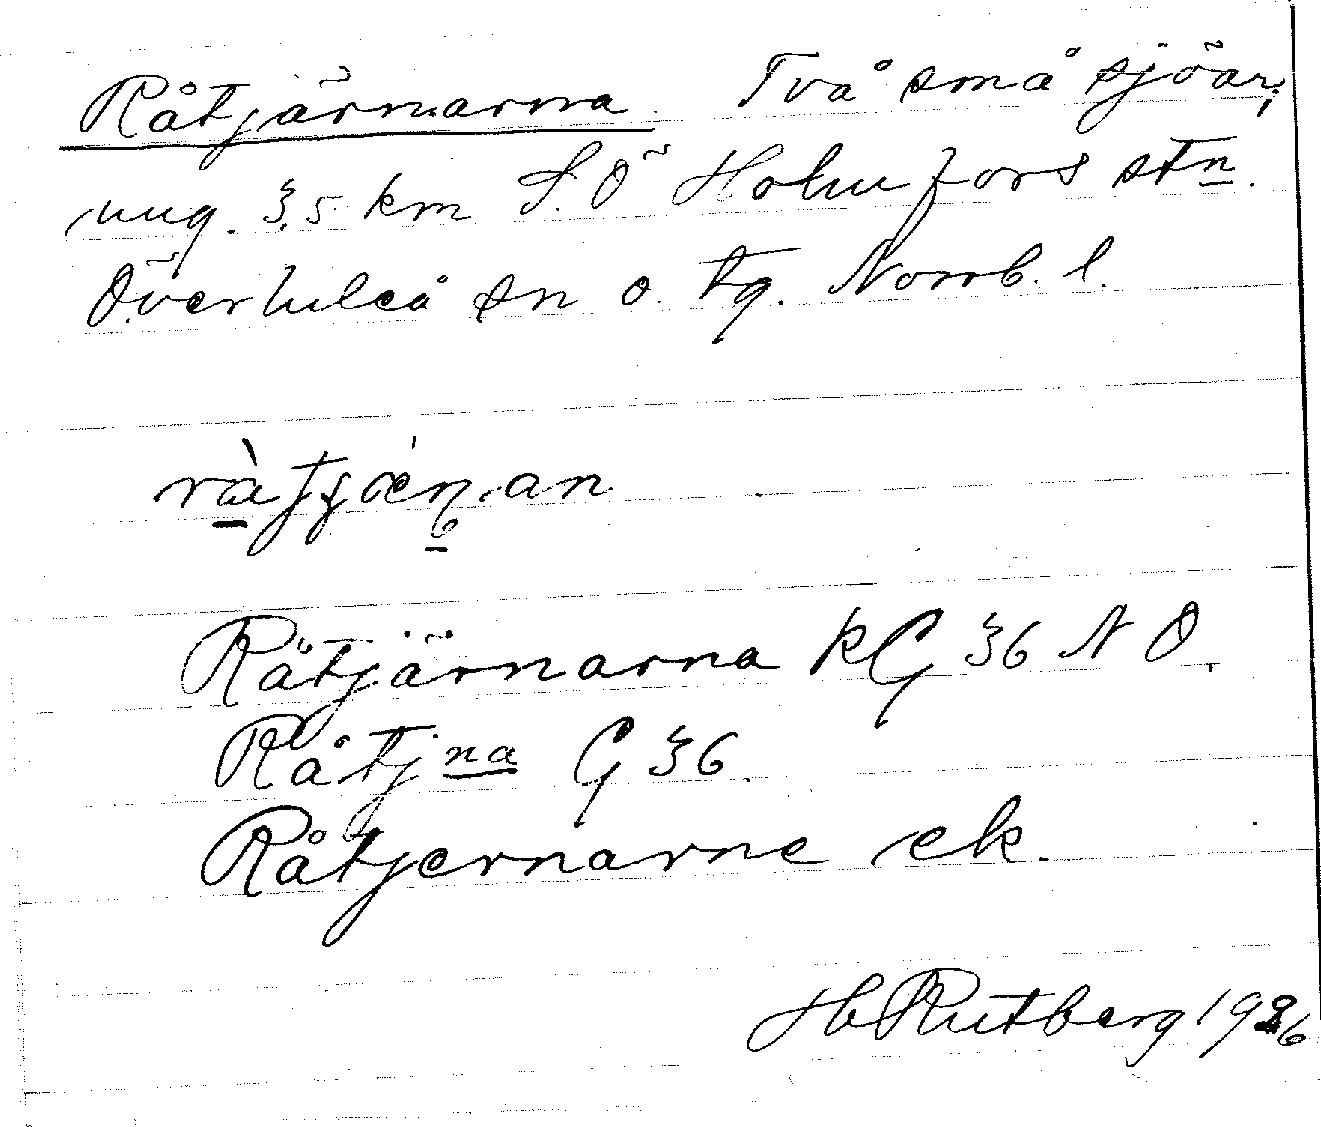 Råtjärnarna. Två små sjöar,
ung. 3,5 km S.Ö Holmfors stn.
Överluleå sn o. tg. Norrb. l.
Råtjärnarna kG 36 NO.
Råtjna G 36.
Råtjernarne ek.
H Rutberg 1936